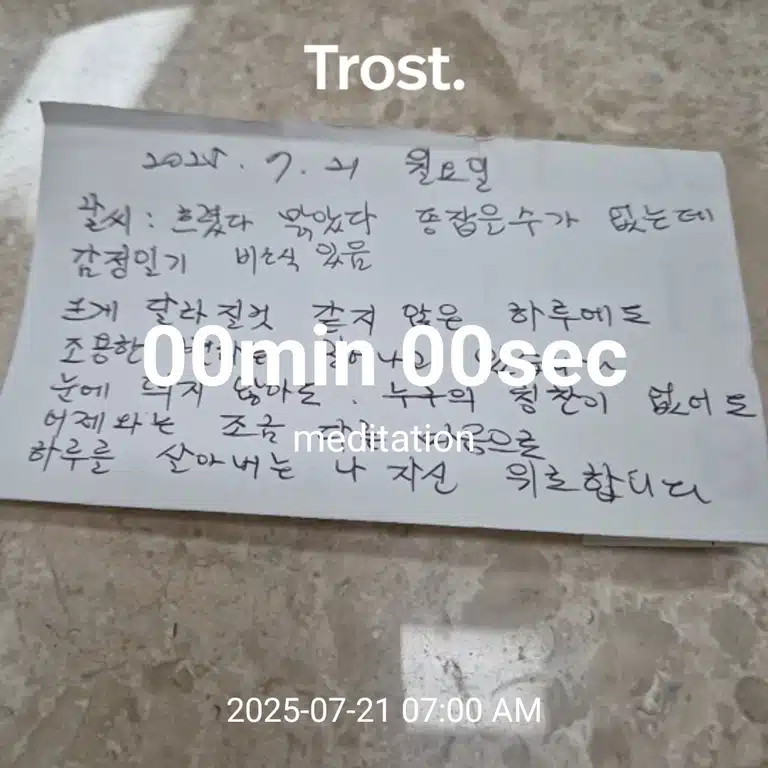 Trost.
2025. 7. 21 월요일
날씨: 흐렸다 맑았다 종잡은수가 없는데
감정일기 비소식 있음
크게 달라질것 같지 않은 하루에도
조용한
00min 00sec
눈에 띄지 않아도. 누구의 칭찬이 없어도
어제와는 조금
meditation
하루를 살아내는 나 자신 위로합니다
2025-07-21 07:00 AM